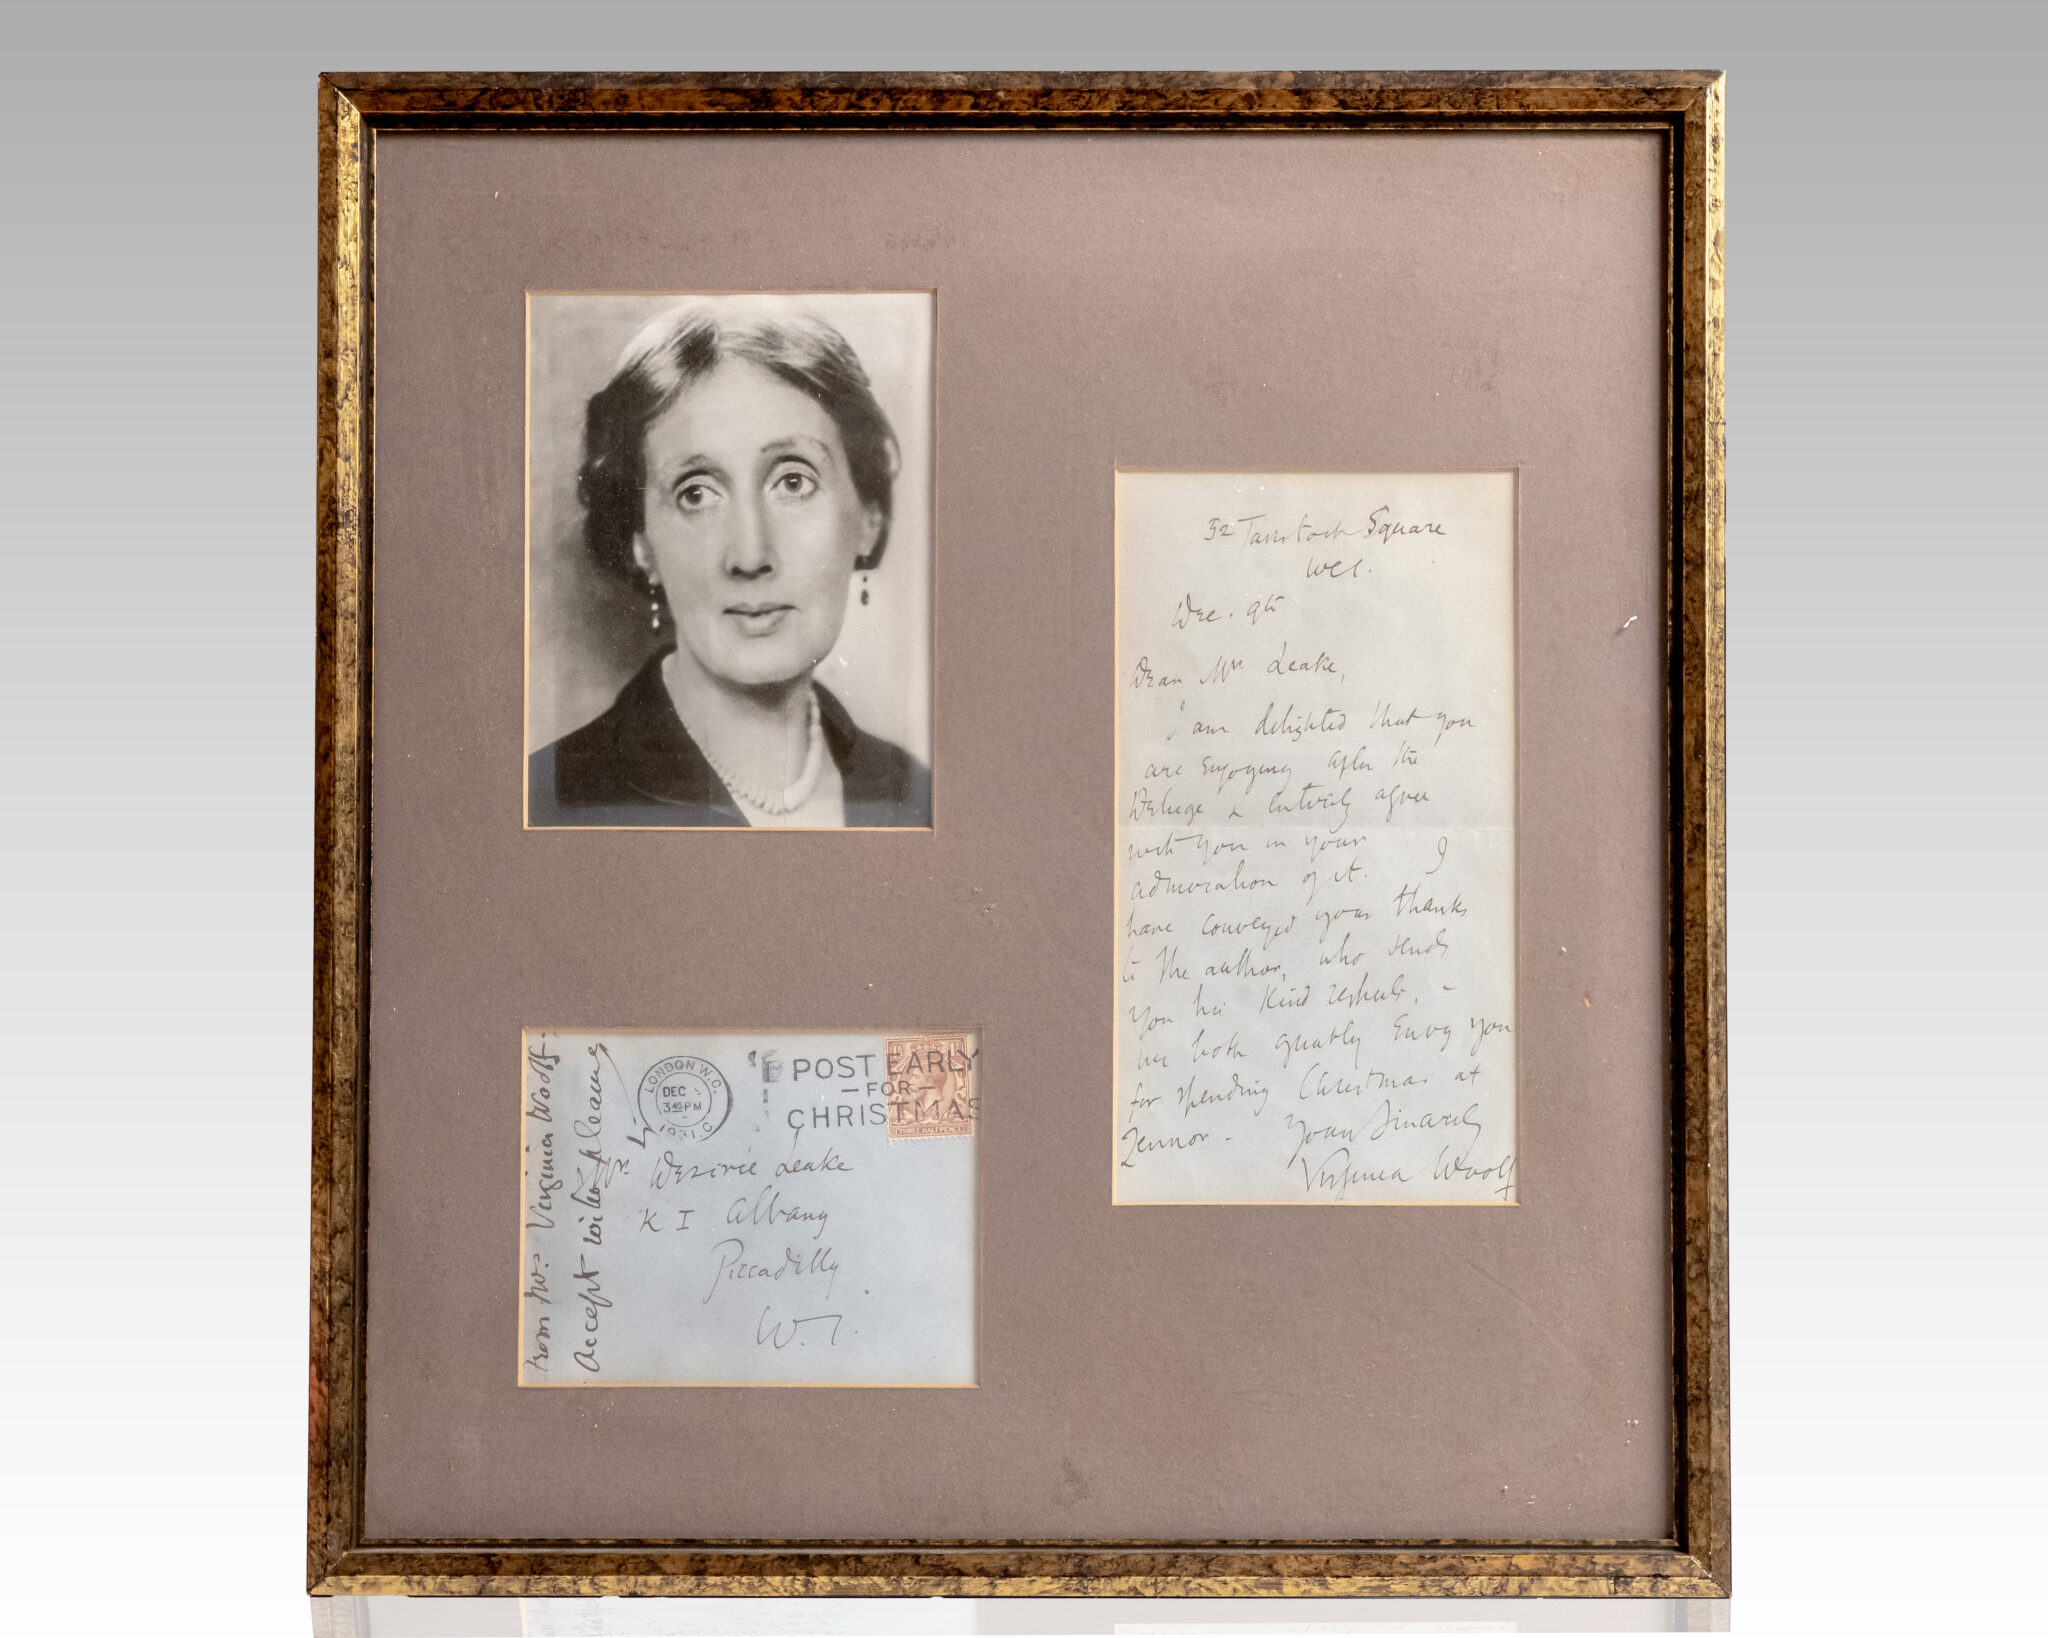 52 Tavistock Square
WC1.
Dec. 9th
Dear Mrs Leake,
I am delighted that you
are enjoying After the
Deluge & entirely agree
with you in your
admiration of it. I
have conveyed your thanks
to the author, who sends
you his kind respects. –
We both greatly envy you
for spending Christmas at
Zennor – Yours Sincerely
Virginia Woolf
LONDON W.C.
DEC
3 45 PM
1931.C
POST EARLY
–FOR–
CHRISTMAS
THREE HALFPENCE
Mrs. Desirée Leake
K I Albany
Piccadilly
W.1.
from Mrs: Virginia Woolf –
Accept with pleasure